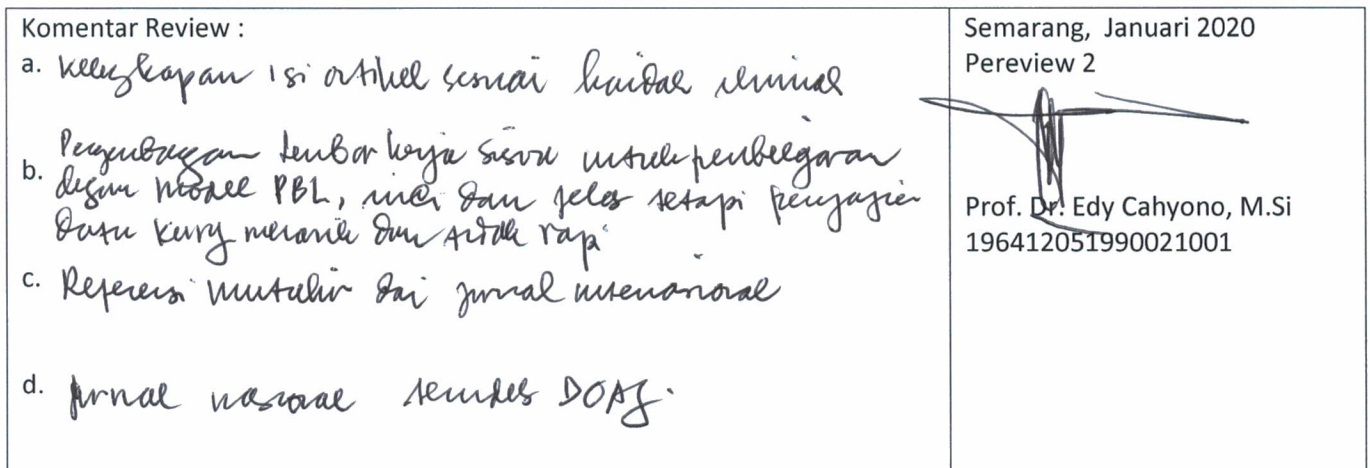 Komentar Review :
a. Kelengkapan isi artikel sesuai kaidah ilmiah
b. Pengembangan lembar kerja siswa untuk pembelajaran
dengan model PBL, rinci dan jelas tetapi penyajian
data kurang menarik dan tidak rapi
c. Referensi mutakhir dari jurnal internasional
d. Jurnal nasional terindeks DOAJ.
Semarang, Januari 2020
Pereview 2
Prof. Dr. Edy Cahyono, M.Si
196412051990021001